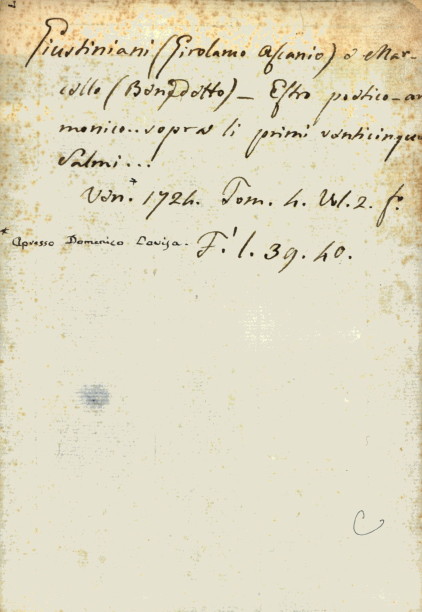 Giustiniani (Girolamo Ascanio) e Mar-
cello (Benedetto) _ Estro poetico-ar
monico.. sopra li primi venticinque
Salmi...
Ven.* 1724. Tom. 4. Vol. 2. f.º
* Apresso Domenico Lovisa. F.' l. 39. 40.
C